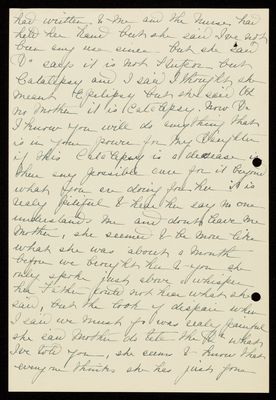 had written to me and the Nurse had
held her hand but she said I've not
been any use since but she said
Dr says it is not Stupor but
Catalepsy and I said I thought she
meant Epilepsy but she said Oh
no Mother it is Catalepsy. Now Dr
I know you will do anything that
is in your power for my Daughter
if this Catalepsy is a disease is
there any possible cure for it beyond
what you are doing for her it is
really pitiful to hear her say no one
understands me and dont leave me
Mother, she seemed to be more like
what she was about a Month
before we brought her to you she
only spoke just above a whisper
her Father could not hear what she
said, but the look of despair when
I said we must go was really painful
she said Mother do tell the Dr what
I've told you, she seems to know that
everyone thinks she has just gone